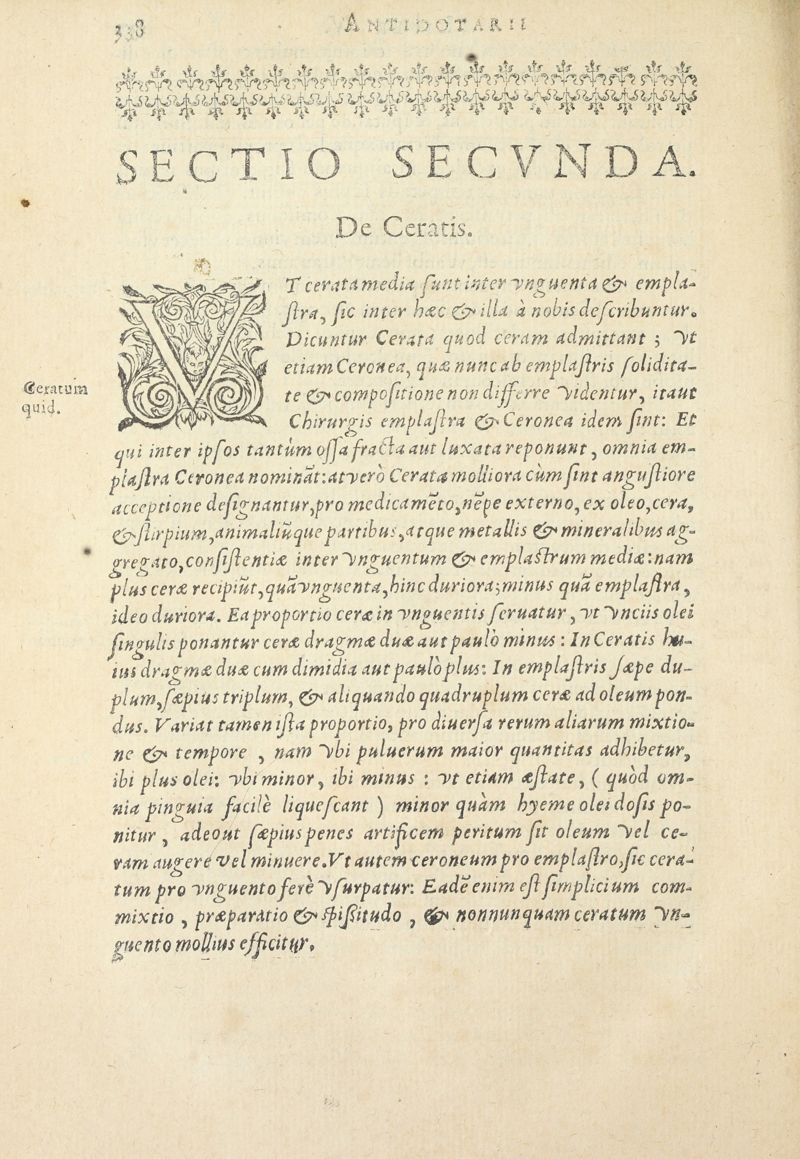 338 ANTIDOTARII
SECTIO SECVNDA.
De Ceratis.
VT cerata media ſunt inter vnguenta & empla-
ſtra, ſic inter hæc & illa à nobis deſcribuntur.
Dicuntur Cerata quod ceram admittant ; vt
etiam Ceronea, quæ nunc ab emplaſtris ſolidita-
Ceratum
quid.
te & compoſitione non differre videntur, itaut
Chirurgis emplaſtra & Ceronea idem ſint: Et
qui inter ipſos tantùm oſſa fracta aut luxata reponunt, omnia em-
plaſtra Ceronea nominãt: at verò Cerata molliora cùm ſint anguſtiore
acceptione deſignantur, pro medicamẽto, nẽpe externo, ex oleo, cera,
& ſtirpium, animaliũque partibus, atque metallis & mineralibus ag-
gregato, conſiſtentiæ inter vnguentum & emplaſtrum mediæ: nam
plus ceræ recipiũt, quã vnguenta, hinc duriora; minus quã emplaſtra,
ideo duriora. Ea proportio ceræ in vnguentis ſeruatur, vt vnciis olei
ſingulis ponantur ceræ dragmæ duæ aut paulò minus : In Ceratis hu-
ius dragmæ duæ cum dimidia aut paulò plus: In emplaſtris ſæpe du-
plum, ſæpius triplum, & aliquando quadruplum ceræ ad oleum pon-
dus. Variat tamen iſta proportio, pro diuerſa rerum aliarum mixtio-
ne & tempore , nam vbi puluerum maior quantitas adhibetur,
ibi plus olei: vbi minor, ibi minus : vt etiam æſtate, ( quòd om-
nia pinguia facilè liqueſcant ) minor quàm hyeme olei doſis po-
nitur , adeout ſæpius penes artificem peritum ſit oleum vel ce-
ram augere vel minuere. Vt autem ceroneum pro emplaſtro, ſic cera-
tum pro vnguento ferè vſurpatur: Eadẽ enim eſt ſimplicium com-
mixtio , præparatio & ſpiſſitudo , & nonnunquam ceratum vn-
guento mollius efficitur.